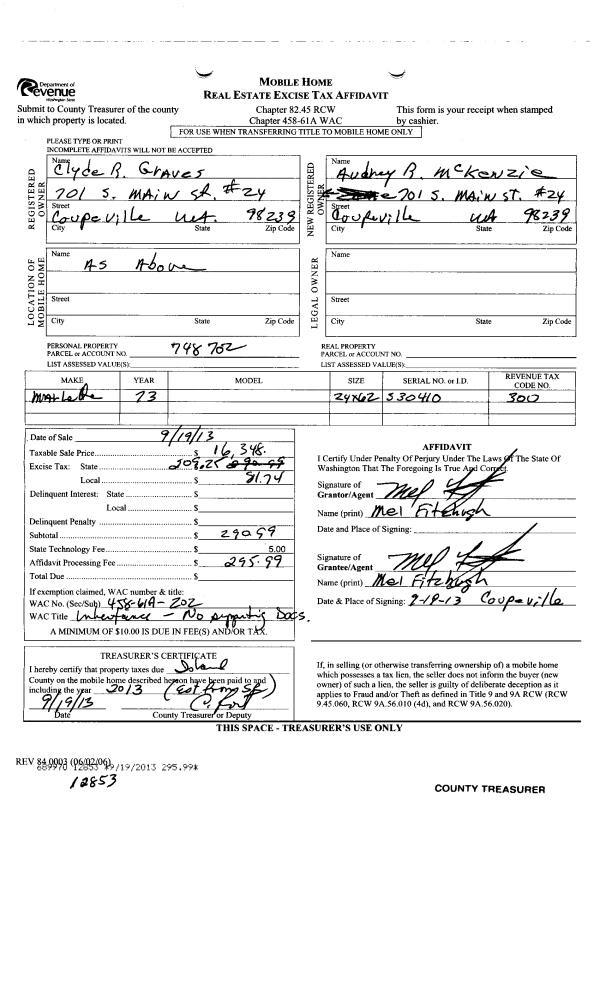 Department of
Revenue
Washington State
MOBILE HOME
REAL ESTATE EXCISE TAX AFFIDAVIT
Submit to County Treasurer of the county
in which property is located.
Chapter 82.45 RCW
Chapter 458-61A WAC
This form is your receipt when stamped
by cashier.
FOR USE WHEN TRANSFERRING TITLE TO MOBILE HOME ONLY
PLEASE TYPE OR PRINT
INCOMPLETE AFFIDAVITS WILL NOT BE ACCEPTED
REGISTERED OWNER
Name
Clyde R. Graves
701 S. MAIN St. #24
Street
Coupeville WA 98239
City State Zip Code
NEW REGISTERED OWNER
Name
Audrey R. McKenzie
701 S. MAIN ST. #24
Street
Coupeville WA 98239
City State Zip Code
LOCATION OF MOBILE HOME
Name
AS Above
Street
City State Zip Code
LEGAL OWNER
Name
Street
City State Zip Code
PERSONAL PROPERTY
PARCEL or ACCOUNT NO. 748702
LIST ASSESSED VALUE(S):
REAL PROPERTY
PARCEL or ACCOUNT NO.
LIST ASSESSED VALUE(S):
MAKE YEAR MODEL SIZE SERIAL NO. or I.D. REVENUE TAX CODE NO.
73 24x62 S30410 300
Date of Sale 9/19/13
Taxable Sale Price $ 16,348.
Excise Tax: State $ 209.25
Local $ 81.74
Delinquent Interest: State $
Local $
Delinquent Penalty $
Subtotal $ 290.99
State Technology Fee $ 5.00
Affidavit Processing Fee $ 295.99
Total Due $
If exemption claimed, WAC number & title:
WAC No. (Sec/Sub) 458-61A-202
WAC Title Inheritance - No supporting Docs.
A MINIMUM OF $10.00 IS DUE IN FEE(S) AND/OR TAX.
AFFIDAVIT
I Certify Under Penalty Of Perjury Under The Laws Of The State Of
Washington That The Foregoing Is True And Correct.
Signature of
Grantor/Agent
Name (print) Mel Fitzhugh
Date and Place of Signing:
Signature of
Grantee/Agent
Name (print) Mel Fitzhugh
Date & Place of Signing: 9-19-13 Coupeville
TREASURER'S CERTIFICATE
I hereby certify that property taxes due Island
County on the mobile home described hereon have been paid to and
including the year 2013
9/19/13
Date County Treasurer or Deputy
If, in selling (or otherwise transferring ownership of) a mobile home
which possesses a tax lien, the seller does not inform the buyer (new
owner) of such a lien, the seller is guilty of deliberate deception as it
applies to Fraud and/or Theft as defined in Title 9 and 9A RCW (RCW
9.45.060, RCW 9A.56.010 (4d), and RCW 9A.56.020).
THIS SPACE - TREASURER'S USE ONLY
REV 84 0003 (06/02/06)
689970 12853 *9/19/2013 295.99*
12853
COUNTY TREASURER